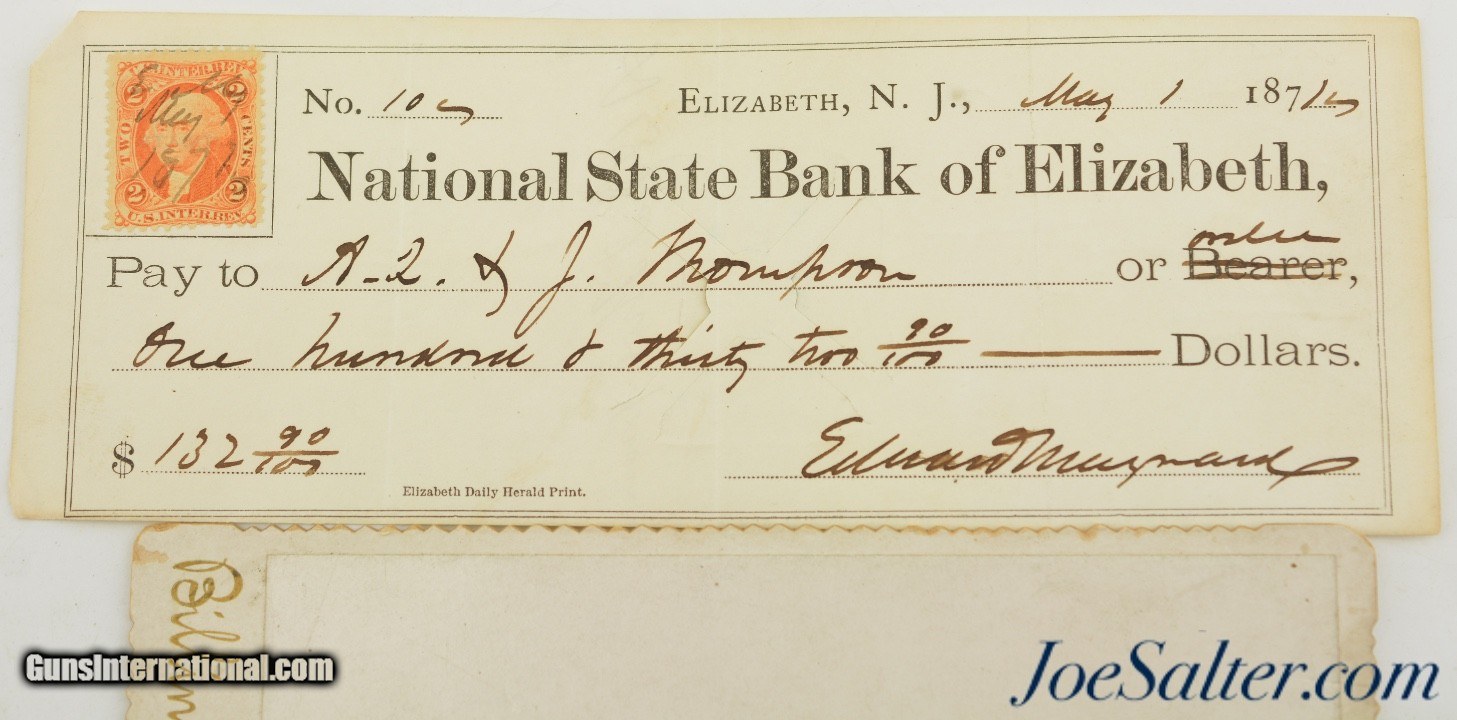 U.S. INTER. REV.
2 2
TWO CENTS
E. M.
May 1
1871
2 2
U.S. INTER. REV.
No. 10
ELIZABETH, N. J., May 1 1871
National State Bank of Elizabeth,
Pay to A. Q. & J. Thompson or Bearer, order
One hundred & thirty two 90/100 Dollars.
$ 132 90/100 Edward Maynard
Elizabeth Daily Herald Print.
GunsInternational.com
JoeSalter.com